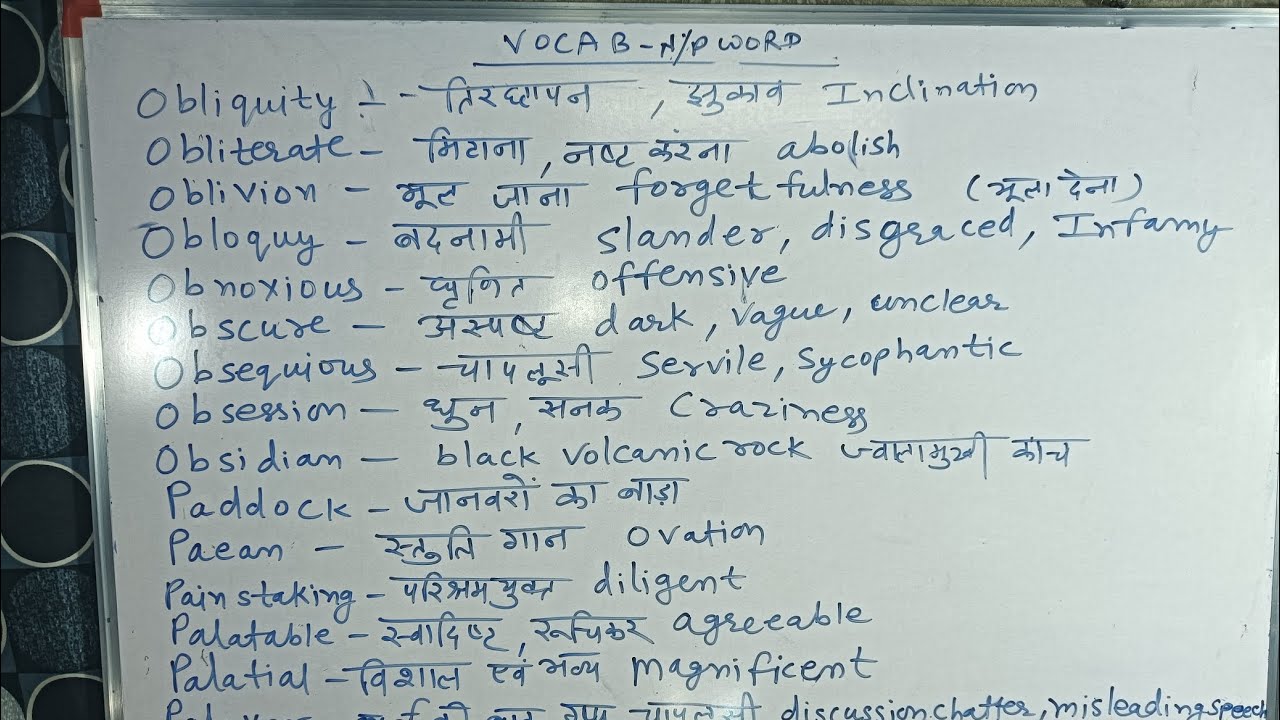 VOCAB - N/P WORD
Obliquity :- - तिरछापन , झुकाव Inclination
Obliterate - मिटाना , नष्ट करना abolish
Oblivion - भूल जाना forgetfulness (भूला देना)
Obloquy - बदनामी slander, disgraced, Infamy
Obnoxious - घृणित offensive
Obscure - अस्पष्ट dark, vague, unclear
Obsequious - चापलूसी servile, sycophantic
Obsession - धुन , सनक Craziness
Obsidian - black volcanic rock ज्वालामुखी काँच
Paddock - जानवरों का बाड़ा
Paean - स्तुति गान ovation
Painstaking - परिश्रमयुक्त diligent
Palatable - स्वादिष्ट , रूचिकर agreeable
Palatial - विशाल एवं भव्य magnificent
चापलूसी discussion chatter, misleading speech